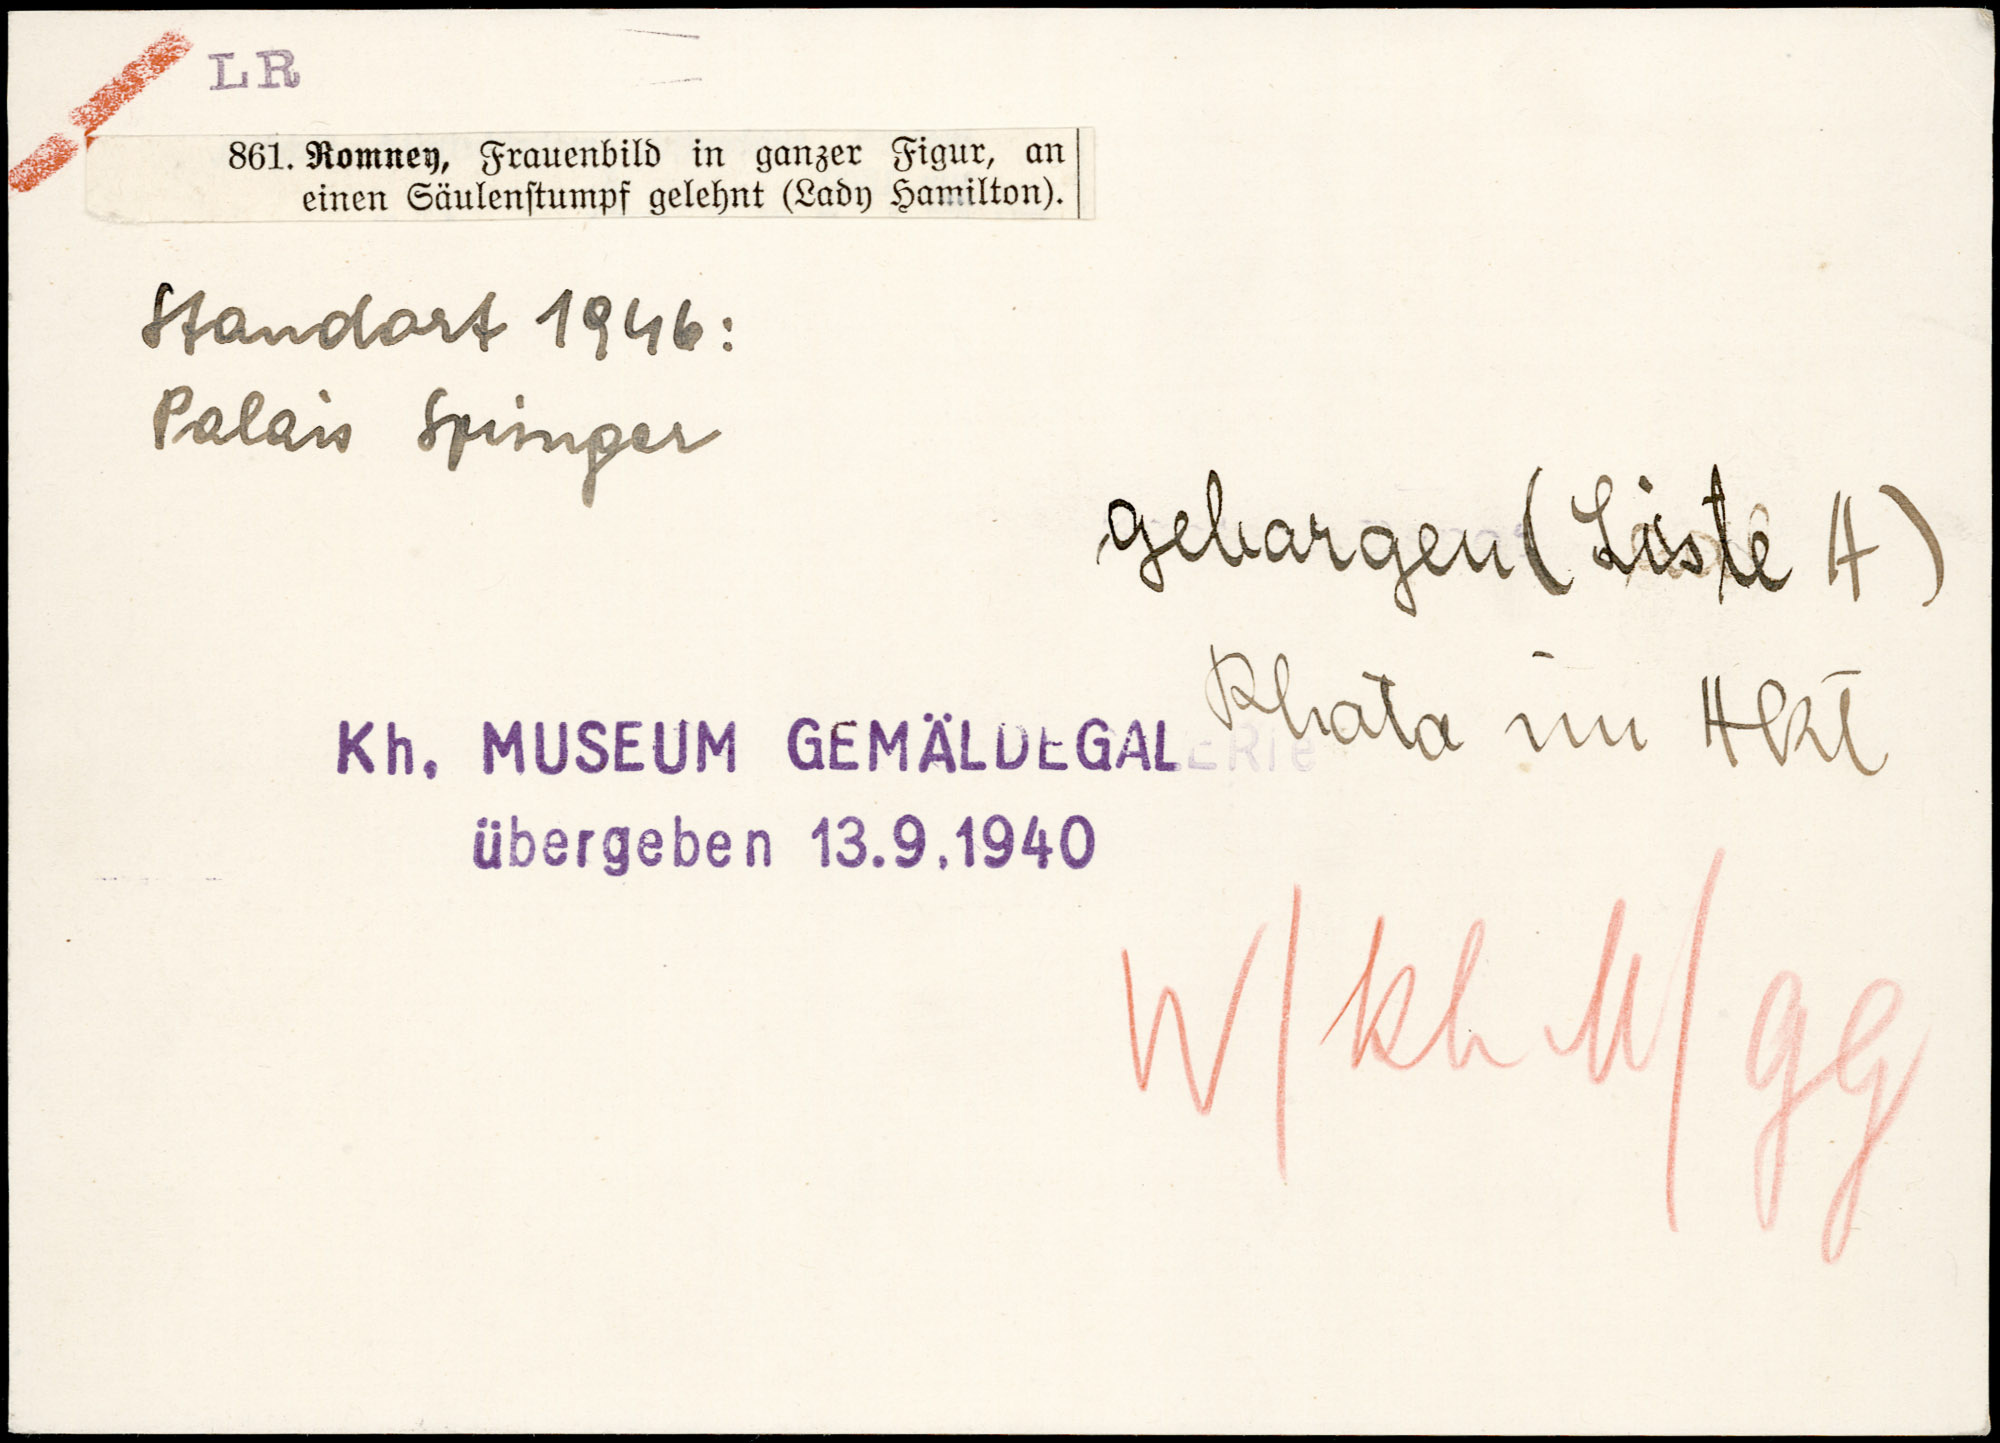 LR
861. Romney, Frauenbild in ganzer Figur, an
einen Säulenstumpf gelehnt (Lady Hamilton).
Standort 1946:
Palais Springer
geborgen (Liste A)
Photo im Akt
Kh. MUSEUM GEMÄLDEGALERIE
übergeben 13.9.1940
W/kh M/gg